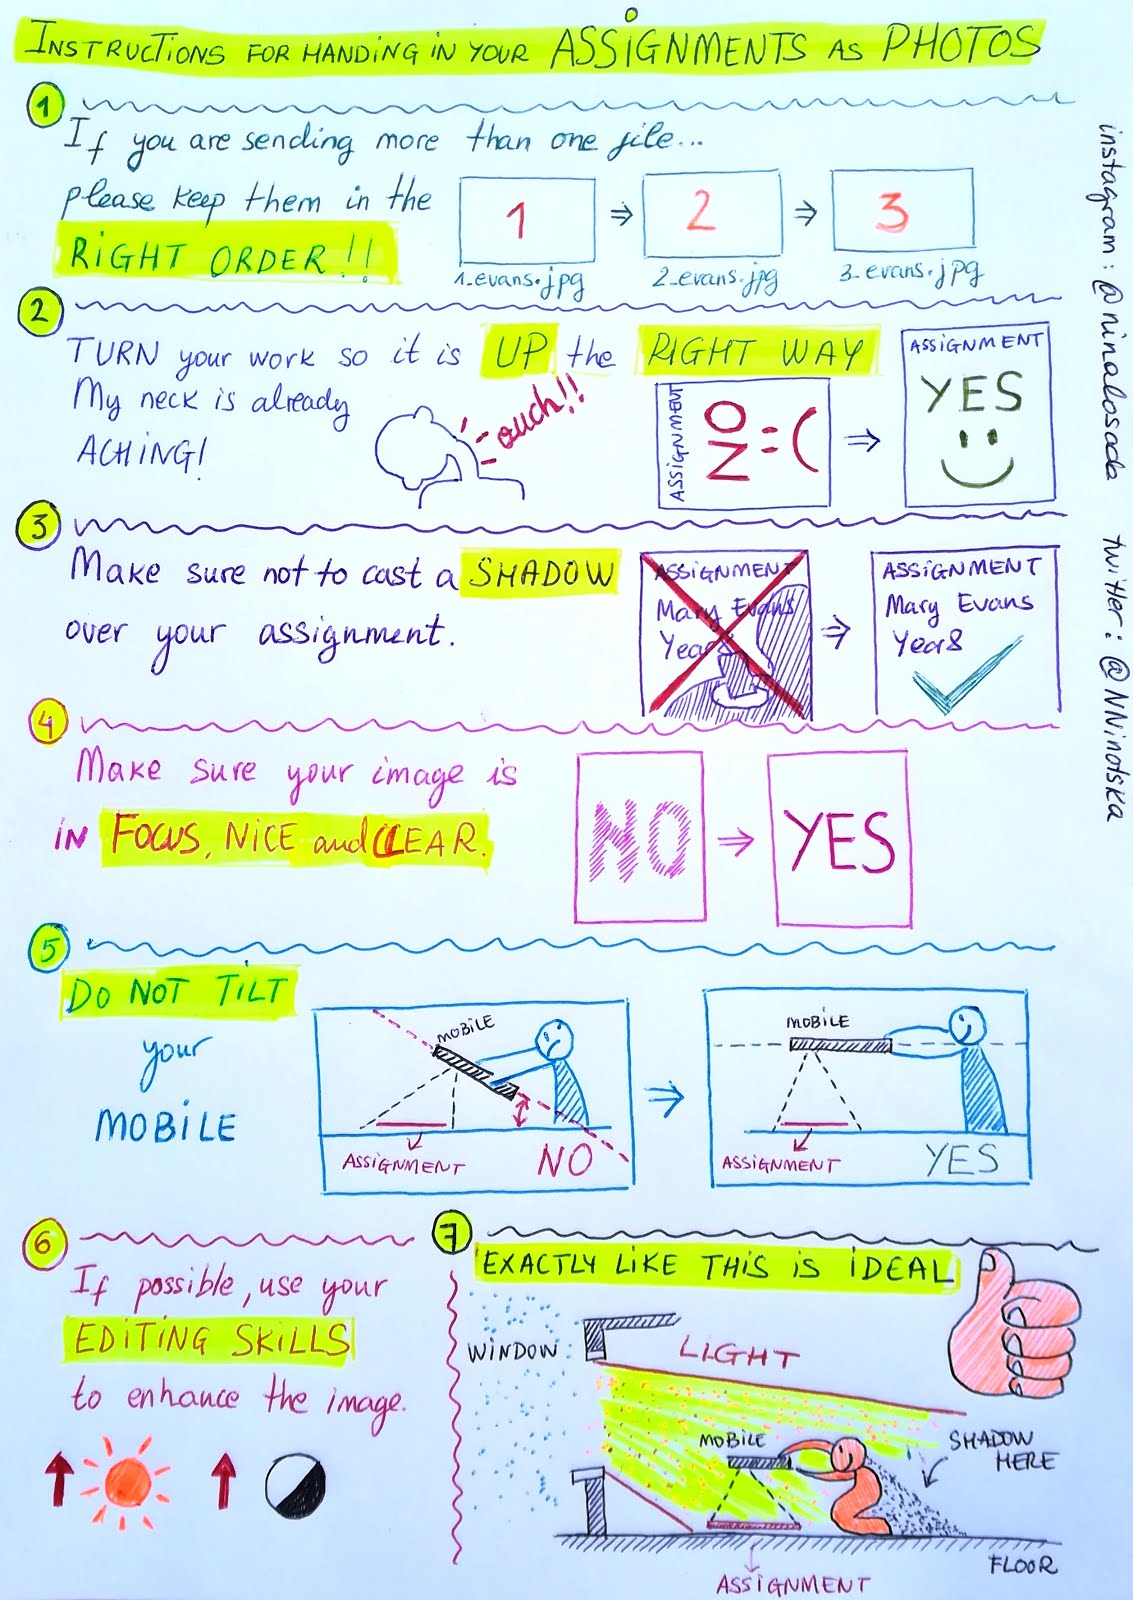 INSTRUCTIONS FOR HANDING IN YOUR ASSIGNMENTS AS PHOTOS
1
If you are sending more than one file...
please keep them in the
RIGHT ORDER!!
1 ⇒ 2 ⇒ 3
1_evans.jpg 2_evans.jpg 3_evans.jpg
2
TURN your work so it is UP the RIGHT WAY
My neck is already
ACHING!
ouch!!
ASSIGNMENT
NO :(
ASSIGNMENT
YES
3
Make sure not to cast a SHADOW
over your assignment.
ASSIGNMENT
Mary Evans
Year8
ASSIGNMENT
Mary Evans
Year8
4
Make sure your image is
IN FOCUS, NICE and CLEAR.
NO ⇒ YES
5
DO NOT TILT
your
MOBILE
MOBILE
ASSIGNMENT
NO
MOBILE
ASSIGNMENT
YES
6
If possible, use your
EDITING SKILLS
to enhance the image.
7
EXACTLY LIKE THIS IS IDEAL
WINDOW
LIGHT
MOBILE
SHADOW
HERE
FLOOR
ASSIGNMENT
instagram: @ninalosada twitter: @NNinotska